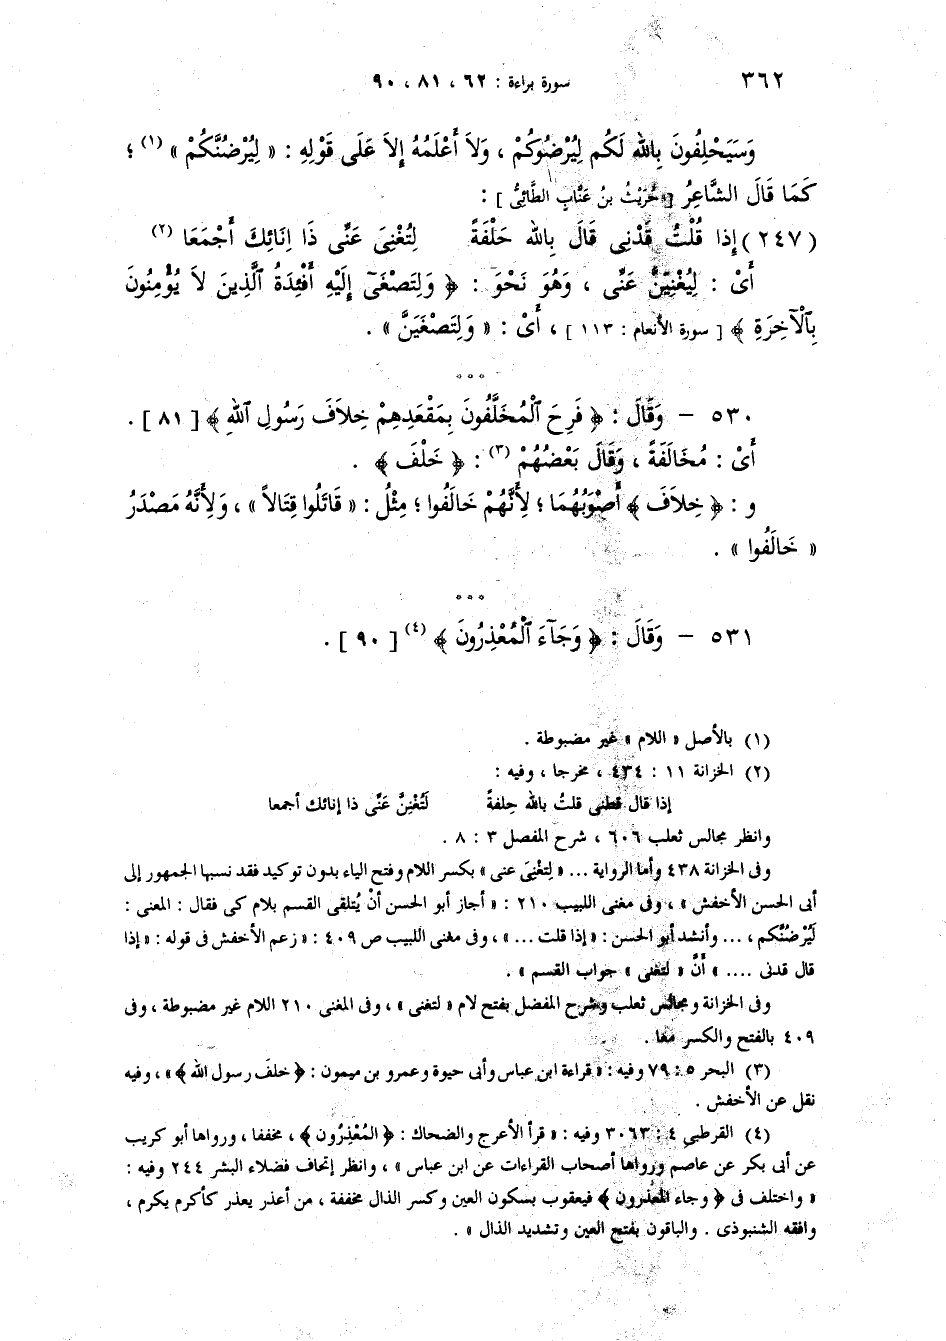 ٣٦٢ سورة براءة : ٦٢ ، ٨١ ، ٩٠
وَسَيَحْلِفُونَ بِاللهِ لَكُم لِيُرْضُوكُمْ ، وَلاَ أَعْلَمُهُ إِلاَ عَلَى قَوْلِهِ : « لِيُرْضُنَّكُمْ » (١) ؛
كَمَا قَالَ الشَّاعِرُ [ حُرَيْثُ بنُ عَنَّابٍ الطَّائِىُّ ] :
(٢٤٧) إِذا قُلْتُ قَدْنِى قَالَ بِاللهِ حَلْفَةً لِتُغْنِىَ عَنِّى ذَا اِنَائِكَ أَجْمَعَا (٢)
أَىْ : لِيُغْنِيَنَّ عَنِّى ، وَهُوَ نَحْوَ : ﴿ وَلِتَصْغَىٰٓ إِلَيْهِ أَفْئِدَةُ ٱلَّذِينَ لاَ يُؤْمِنُونَ
بِٱلْآخِرَةِ ﴾ [ سورة الأنعام : ١١٣ ] ، أَىْ : « وَلِتَصْغَيَنَّ » .
* * *
٥٣٠ – وَقَالَ : ﴿ فَرِحَ ٱلْمُخَلَّفُونَ بِمَقْعَدِهِمْ خِلاَفَ رَسُولِ ٱللهِ ﴾ [ ٨١ ] .
أَىْ : مُخَالَفَةً ، وَقَالَ بَعْضُهُمْ (٣) : ﴿ خَلْفَ ﴾ .
و : ﴿ خِلاَفَ ﴾ أَصْوَبُهُمَا ؛ لِأَنَّهُمْ خَالَفُوا ؛ مِثْلُ : « قَاتَلُوا قِتَالاً » ، وَلِأَنَّهُ مَصْدَرُ
« خَالَفُوا » .
* * *
٥٣١ – وَقَالَ : ﴿ وَجَآءَ ٱلْمُعْذِرُونَ ﴾ (٤) [ ٩٠ ] .
(١) بالأصل « اللام » غير مضبوطة .
(٢) الخزانة ١١ : ٤٣٤ ، مخرجا ، وفيه :
إذا قال قطنى قلتُ بالله حِلفةً لَتُغْنِنَّ عَنِّى ذا إنائك أجمعا
وانظر مجالس ثعلب ٦٠٦ ، شرح المفصل ٣ : ٨ .
وفى الخزانة ٤٣٨ وأما الرواية ... « لِتغْنِىَ عنى » بكسر اللام وفتح الياء بدون توكيد فقد نسبها الجمهور إلى
أبى الحسن الأخفش » ، وفى مغنى اللبيب ٢١٠ : « أجاز أبو الحسن أنْ يُتلقى القسم بلام كى فقال : المعنى :
لَيُرْضُنُكم ، ... وأنشد أبو الحسن : « إذا قلت ... » ، وفى مغنى اللبيب ص ٤٠٩ : « زعم الأخفش فى قوله : « إذا
قال قدنى .... » أنَّ « لتغنى » جواب القسم » .
وفى الخزانة ومجالس ثعلب وشرح المفضل بفتح لام « لتغنى » ، وفى المغنى ٢١٠ اللام غير مضبوطة ، وفى
٤٠٩ بالفتح والكسر معا .
(٣) البحر ٥ : ٧٩ وفيه : « قراءة ابن عباس وأبى حيوة وعمرو بن ميمون : ﴿ خلفَ رسول الله ﴾ » ، وفيه
نقل عن الأخفش .
(٤) القرطبى ٤ : ٣٠٦٣ وفيه : « قرأ الأعرج والضحاك : ﴿ المُعْذِرُون ﴾ ، مخففا ، ورواها أبو كريب
عن أبى بكر عن عاصم ورواها أصحاب القراءات عن ابن عباس » ، وانظر إتحاف فضلاء البشر ٢٤٤ وفيه :
« واختلف فى ﴿ وجاء المُعذرون ﴾ فيعقوب بسكون العين وكسر الذال مخففة ، من أعذر يعذر كأكرم يكرم ،
وافقه الشنبوذى . والباقون بفتح العين وتشديد الذال » .